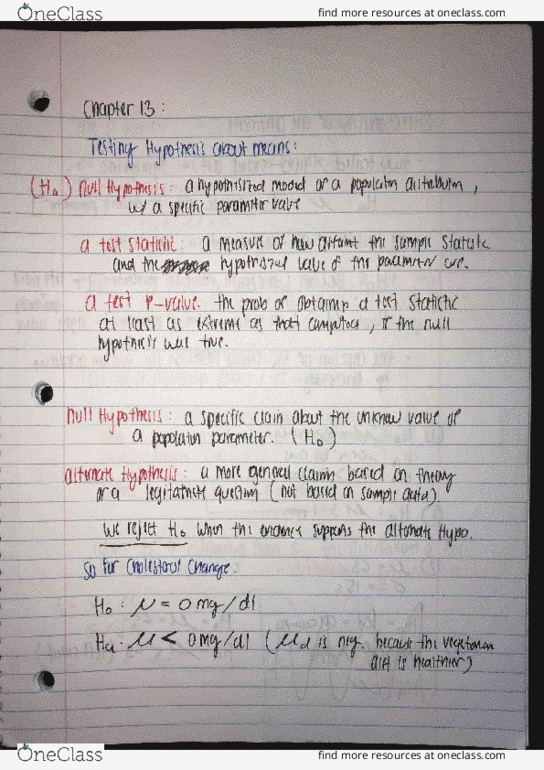 OneClass
find more resources at oneclass.com
Chapter 13:
Testing Hypothesis about means:
(Ho) Null Hypothesis: a hypothesized model or a population distribution,
w/ a specific parameter value
a test statistic: a measure of how distant the sample statistic
and the hypothesized value of the parameter are.
a test P-value: the prob of obtaining a test statistic
at least as extreme as that computed, if the null
hypothesis was true.
Null Hypothesis: a specific claim about the unknown value of
a population parameter. (Ho)
alternate Hypothesis: a more general claim based on theory
or a legitatmate question (not based on sample data)
We reject Ho when the evidence supports the alternate Hypo.
So for Cholesterol Change:
Ho: μ = 0 mg/dl
Ha: μ < 0 mg/dl (μd is neg. because the vegetarian
diet is healthier)
OneClass
find more resources at oneclass.com